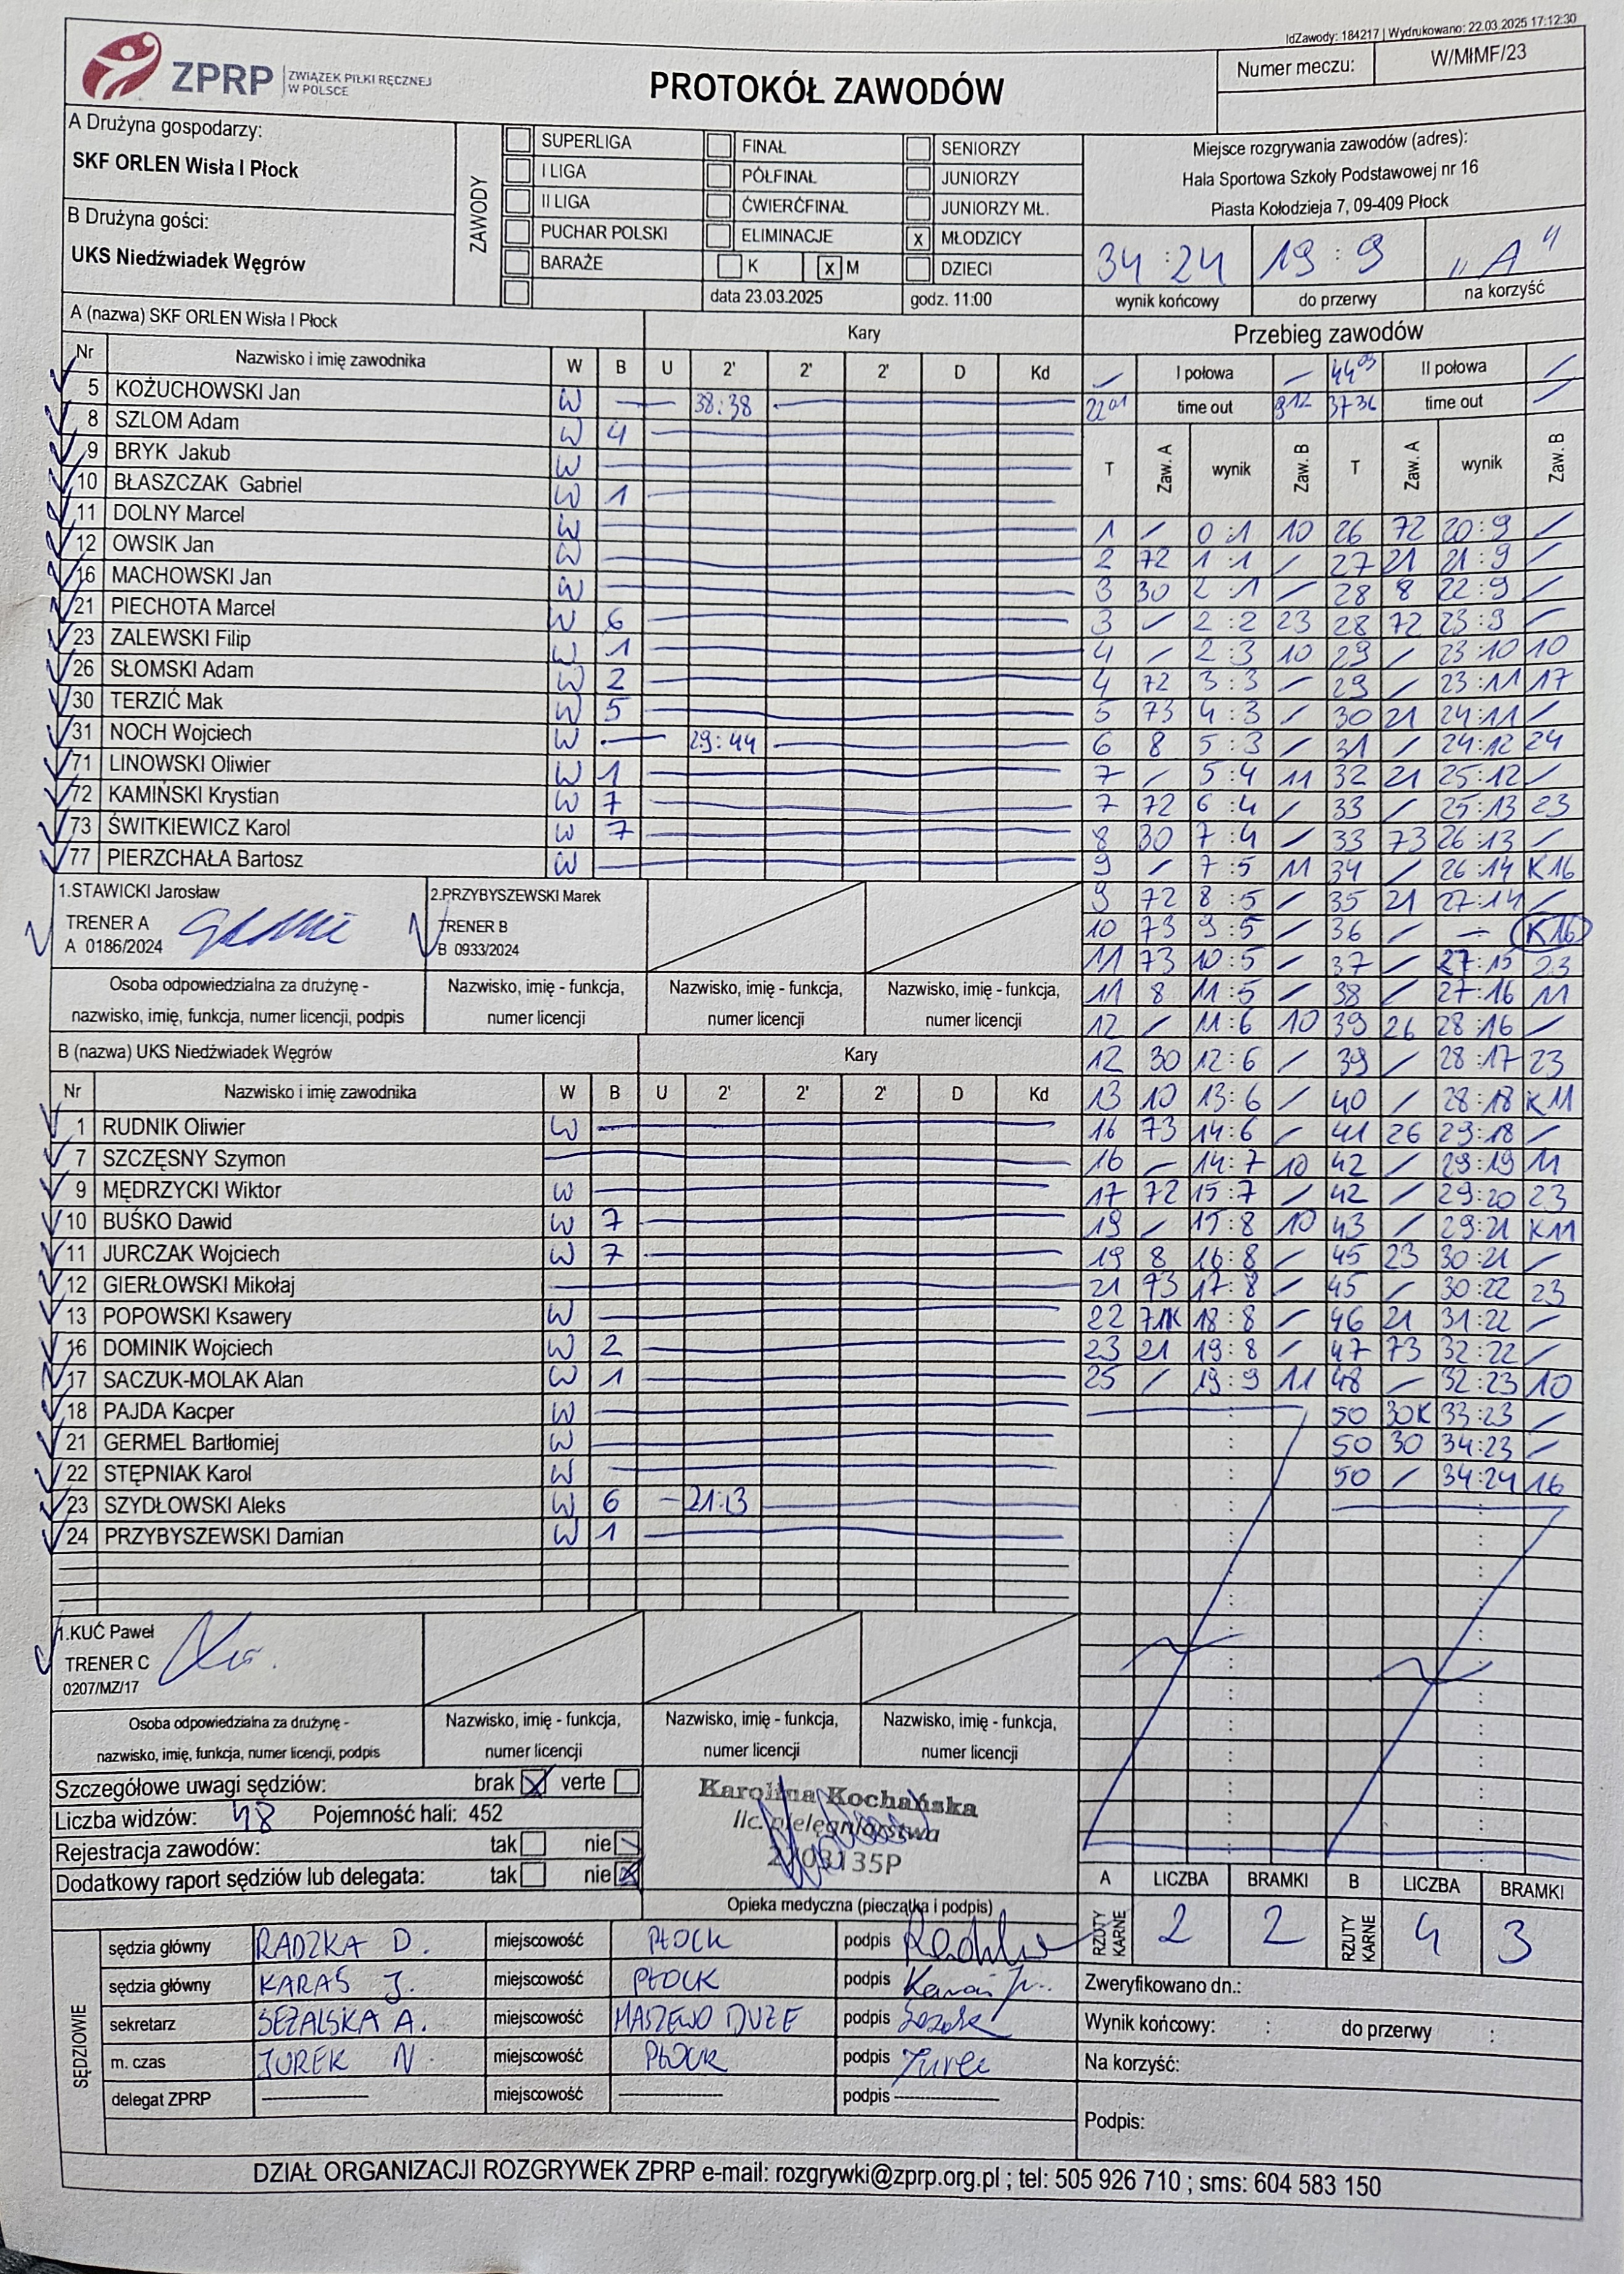 IdZawody: 184217 | Wydrukowano: 22.03.2025 17:12:30
ZPRP ZWIĄZEK PIŁKI RĘCZNEJ
W POLSCE
PROTOKÓŁ ZAWODÓW
Numer meczu: W/MłMF/23
A Drużyna gospodarzy:
SKF ORLEN Wisła I Płock
B Drużyna gości:
UKS Niedźwiadek Węgrów
ZAWODY
SUPERLIGA FINAŁ SENIORZY
I LIGA PÓŁFINAŁ JUNIORZY
II LIGA ĆWIERĆFINAŁ JUNIORZY MŁ.
PUCHAR POLSKI ELIMINACJE x MŁODZICY
BARAŻE K x M DZIECI
data 23.03.2025 godz. 11:00
Miejsce rozgrywania zawodów (adres):
Hala Sportowa Szkoły Podstawowej nr 16
Piasta Kołodzieja 7, 09-409 Płock
34 : 24 19 : 9 „A"
wynik końcowy do przerwy na korzyść
A (nazwa) SKF ORLEN Wisła I Płock Kary
Nr Nazwisko i imię zawodnika W B U 2' 2' 2' D Kd
5 KOŻUCHOWSKI Jan W 38:38
8 SZLOM Adam W 4
9 BRYK Jakub W
10 BŁASZCZAK Gabriel W 1
11 DOLNY Marcel W
12 OWSIK Jan W
16 MACHOWSKI Jan W
21 PIECHOTA Marcel W 6
23 ZALEWSKI Filip W 1
26 SŁOMSKI Adam W 2
30 TERZIĆ Mak W 5
31 NOCH Wojciech W 29:44
71 LINOWSKI Oliwier W 1
72 KAMIŃSKI Krystian W 7
73 ŚWITKIEWICZ Karol W 7
77 PIERZCHAŁA Bartosz W
1.STAWICKI Jarosław
TRENER A
A 0186/2024
2.PRZYBYSZEWSKI Marek
TRENER B
B 0933/2024
Osoba odpowiedzialna za drużynę - Nazwisko, imię - funkcja, Nazwisko, imię - funkcja, Nazwisko, imię - funkcja,
nazwisko, imię, funkcja, numer licencji, podpis numer licencji numer licencji numer licencji
B (nazwa) UKS Niedźwiadek Węgrów Kary
Nr Nazwisko i imię zawodnika W B U 2' 2' 2' D Kd
1 RUDNIK Oliwier W
7 SZCZĘSNY Szymon
9 MĘDRZYCKI Wiktor W
10 BUŚKO Dawid W 7
11 JURCZAK Wojciech W 7
12 GIERŁOWSKI Mikołaj
13 POPOWSKI Ksawery W
16 DOMINIK Wojciech W 2
17 SACZUK-MOLAK Alan W 1
18 PAJDA Kacper W
21 GERMEL Bartłomiej W
22 STĘPNIAK Karol W
23 SZYDŁOWSKI Aleks W 6 21:13
24 PRZYBYSZEWSKI Damian W 1
1.KUĆ Paweł
TRENER C
0207/MZ/17
Osoba odpowiedzialna za drużynę - Nazwisko, imię - funkcja, Nazwisko, imię - funkcja, Nazwisko, imię - funkcja,
nazwisko, imię, funkcja, numer licencji, podpis numer licencji numer licencji numer licencji
Przebieg zawodów
I połowa 44 09 II połowa
22 01 time out 9 12 37 36 time out
T Zaw. A wynik Zaw. B T Zaw. A wynik Zaw. B
1 / 0:1 10 26 72 20:9 /
2 72 1:1 / 27 21 21:9 /
3 30 2:1 / 28 8 22:9 /
3 / 2:2 23 28 72 23:9 /
4 / 2:3 10 29 / 23:10 10
4 72 3:3 / 29 / 23:11 17
5 73 4:3 / 30 21 24:11 /
6 8 5:3 / 31 / 24:12 24
7 / 5:4 11 32 21 25:12 /
7 72 6:4 / 33 / 25:13 23
8 30 7:4 / 33 73 26:13 /
9 / 7:5 11 34 / 26:14 K16
9 72 8:5 / 35 21 27:14 /
10 73 9:5 / 36 / – K16
11 73 10:5 / 37 / 27:15 23
11 8 11:5 / 38 / 27:16 11
12 / 11:6 10 39 26 28:16 /
12 30 12:6 / 39 / 28:17 23
13 10 13:6 / 40 / 28:18 K11
16 73 14:6 / 41 26 29:18 /
16 / 14:7 10 42 / 29:19 11
17 72 15:7 / 42 / 29:20 23
19 / 15:8 10 43 / 29:21 K11
19 8 16:8 / 45 23 30:21 /
21 73 17:8 / 45 / 30:22 23
22 71K 18:8 / 46 21 31:22 /
23 21 19:8 / 47 73 32:22 /
25 / 19:9 11 48 / 32:23 10
50 30K 33:23 /
50 30 34:23 /
50 / 34:24 16
Szczegółowe uwagi sędziów: brak x verte
Liczba widzów: 48 Pojemność hali: 452
Rejestracja zawodów: tak nie
Dodatkowy raport sędziów lub delegata: tak nie x
Karolina Kochańska
lic. pielęgniarstwa
Opieka medyczna (pieczątka i podpis)
A LICZBA BRAMKI B LICZBA BRAMKI
RZUTY KARNE 2 2 RZUTY KARNE 4 3
SĘDZIOWIE
sędzia główny RADZKA D. miejscowość PŁOCK podpis
sędzia główny KARAŚ J. miejscowość PŁOCK podpis
sekretarz SEŻALSKA A. miejscowość MASZEWO DUŻE podpis
m. czas JUREK N. miejscowość PŁOCK podpis Jurek
delegat ZPRP miejscowość podpis
Zweryfikowano dn.:
Wynik końcowy: : do przerwy :
Na korzyść:
Podpis:
DZIAŁ ORGANIZACJI ROZGRYWEK ZPRP e-mail: rozgrywki@zprp.org.pl ; tel: 505 926 710 ; sms: 604 583 150